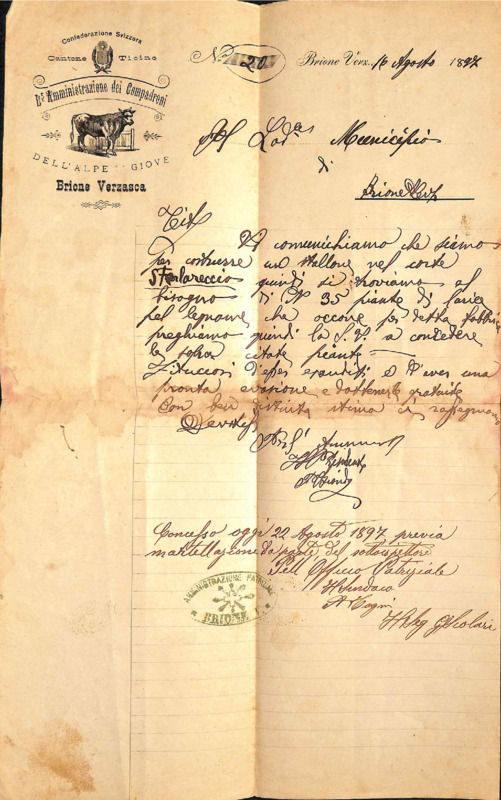 Confederazione Svizzera
Cantone Ticino
Da Amministrazione dei Compadroni
DELL'ALPE GIOVE
Brione Verzasca
No 20 Brione Verz. 16 Agosto 1897
Al Lod. Municipio
di
Brione Verz
Tit
Vi comunichiamo che siamo
per costrurre un stallone nel corte
Stanlareccio quindi si troviamo al
bisogno di No 35 piante di larice
pel legname che occorre per detta fabbri
preghiamo quindi la S. V. a concedere
le sopra citate piante
Fiduciosi d'esser esauditi e d'aver una
pronta evasione e d'ottenerle gratuite
Con ben distinta stima ci rassegnano
Devotis
Il Presidente
Concesso oggi 22 Agosto 1897 previa
martellazione da parte del sottoispettore
Pell Officio Patriziale
Il Sindaco
Il Seg G Scolari
AMMINISTRAZIONE PATRIZIALE
BRIONE